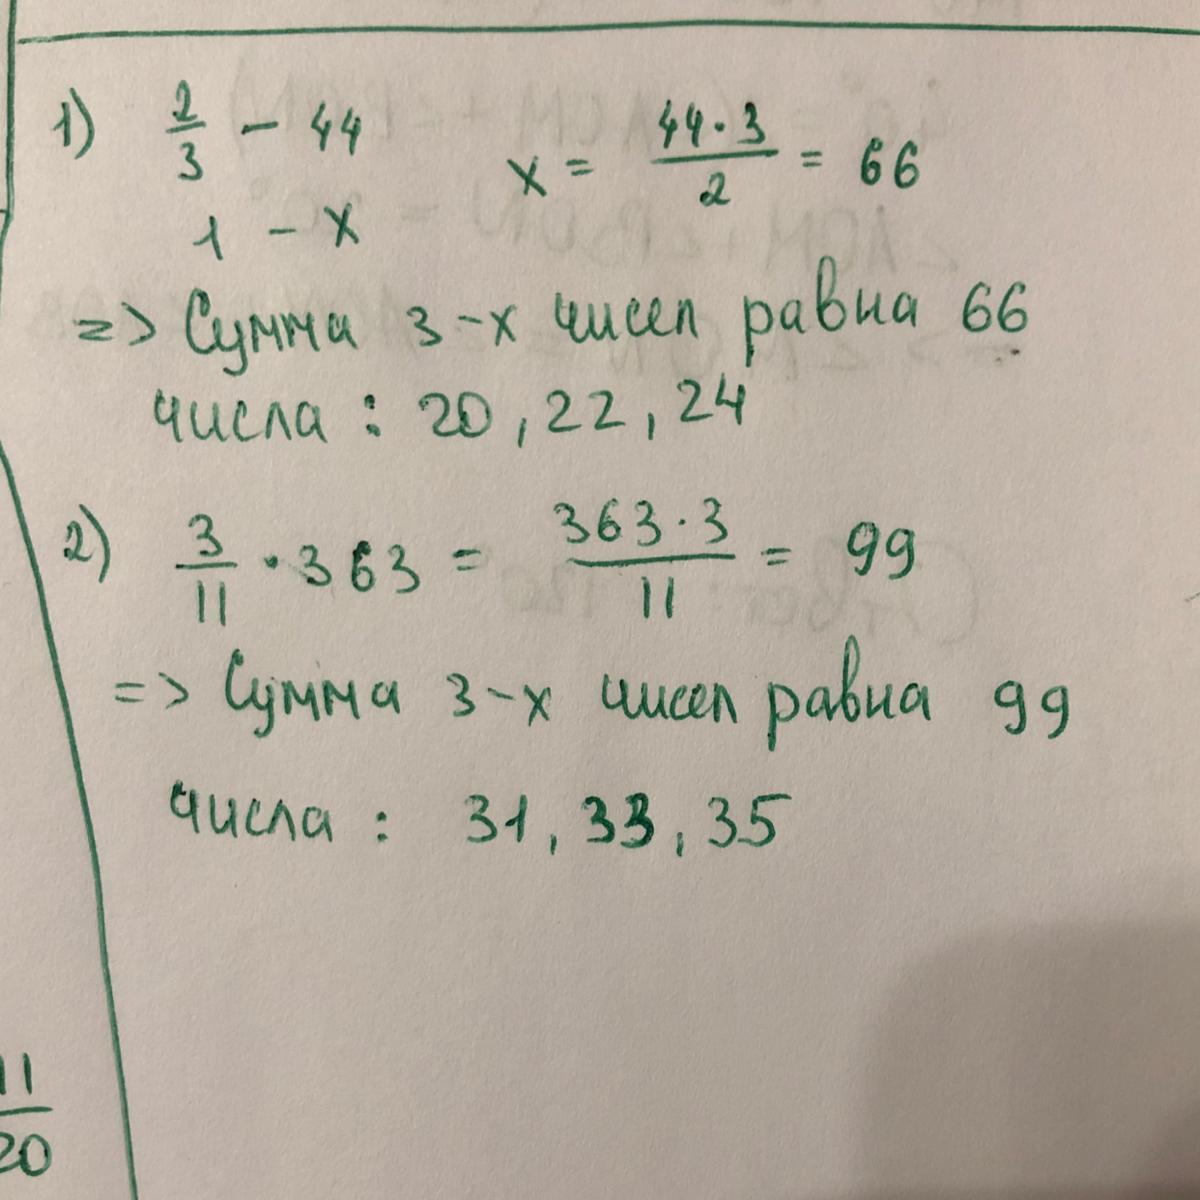 1) 2/3 – 44 x = 44·3/2 = 66
1 – x
=> Сумма 3-х чисел равна 66
числа : 20 , 22 , 24
2) 3/11 · 363 = 363·3/11 = 99
=> Сумма 3-х чисел равна 99
числа : 31 , 33 , 35
11/20